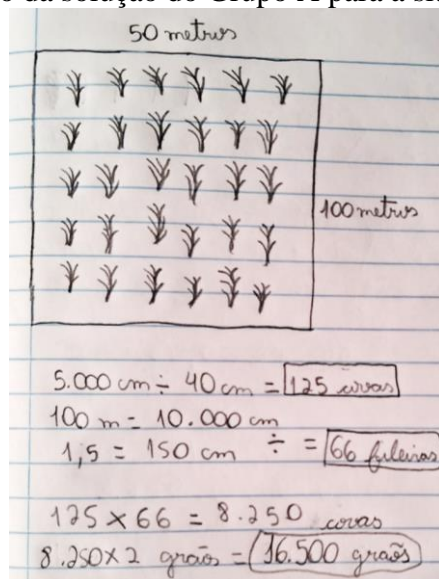 da solução do Grupo A para a si
50 metros
100 metros
5.000 cm ÷ 40 cm = 125 covas
100 m = 10.000 cm
1,5 = 150 cm ÷ = 66 fileiras
125 × 66 = 8.250 covas
8.250 × 2 graõs = 16.500 graõs